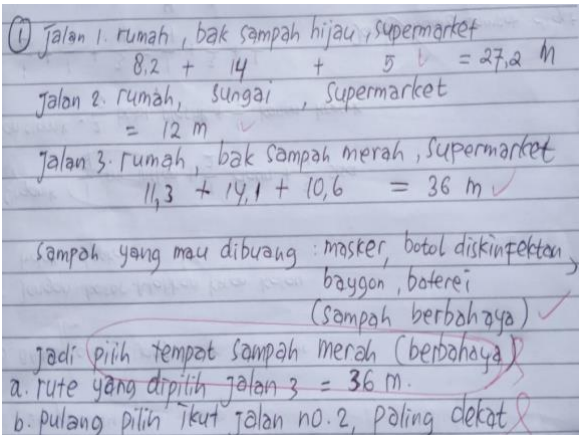 ① Jalan 1. rumah, bak sampah hijau, supermarket
8,2 + 14 + 5 = 27,2 m
Jalan 2. rumah, sungai, supermarket
= 12 m
Jalan 3. rumah, bak sampah merah, supermarket
11,3 + 14,1 + 10,6 = 36 m
Sampah yang mau dibuang : masker, botol diskinfektan,
baygon, baterei
(sampah berbahaya)
Jadi pilih tempat sampah merah (berbahaya)
a. rute yang dipilih Jalan 3 = 36 m.
b. pulang pilih ikut Jalan no. 2, paling dekat